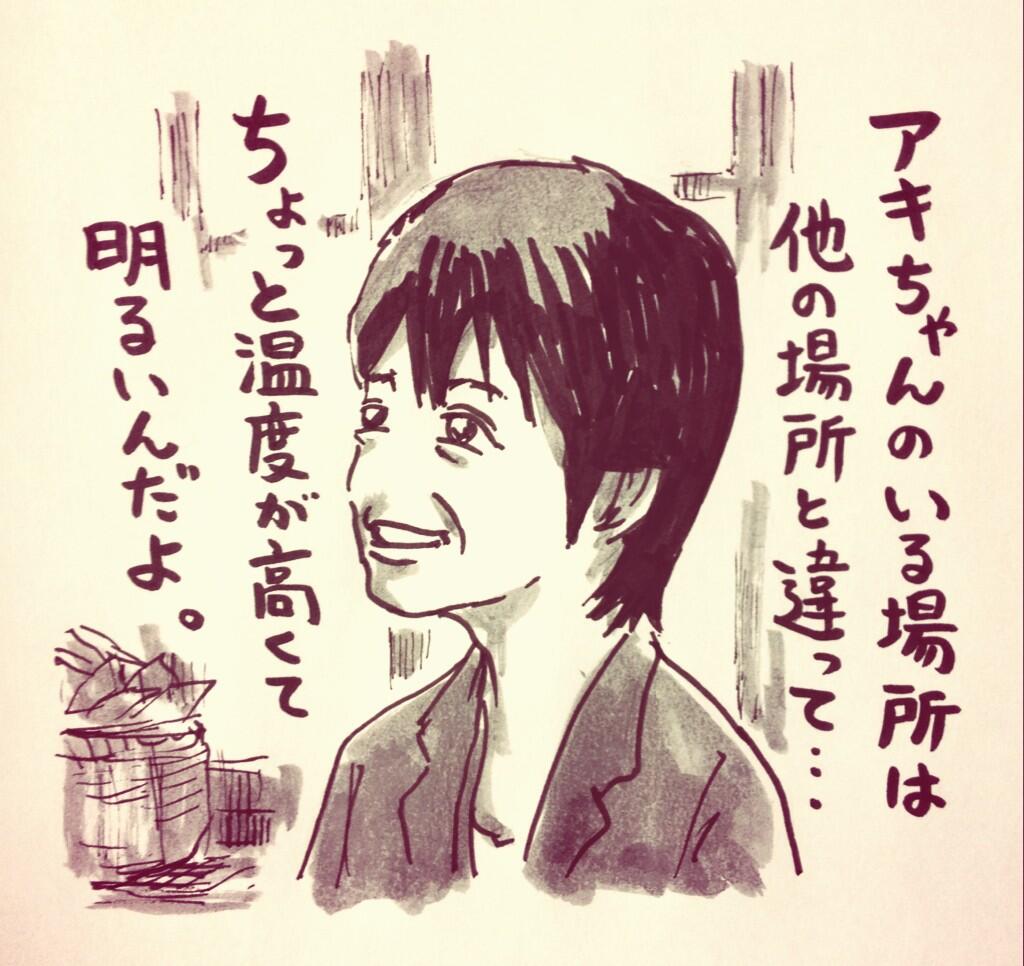 アキちゃんのいる場所は
他の場所と違って…
ちょっと温度が高くて
明るいんだよ。